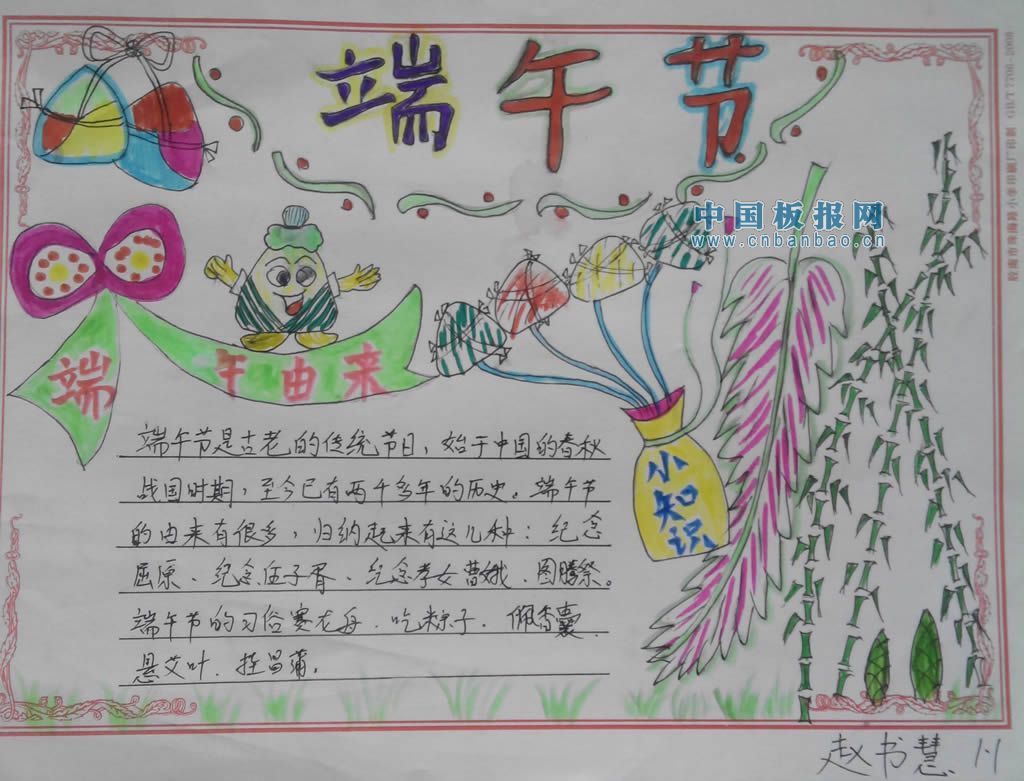 端午节
中国板报网
www.cnbanban.cn
端午由来
端午节是古老的传统节日，始于中国的春秋
战国时期，至今已有两千多年的历史。端午节
的由来有很多，归纳起来有这几种：纪念
屈原、纪念伍子胥、纪念孝女曹娥、图腾祭。
端午节的习俗赛龙舟、吃粽子、佩香囊、
悬艾叶、挂菖蒲。
小知识
赵书慧 1-1
GB/T 7706-2008